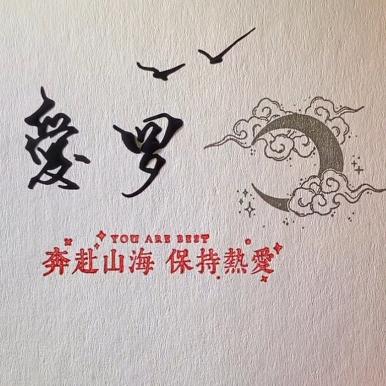 愛罗
YOU ARE BEST
奔赴山海 保持熱愛